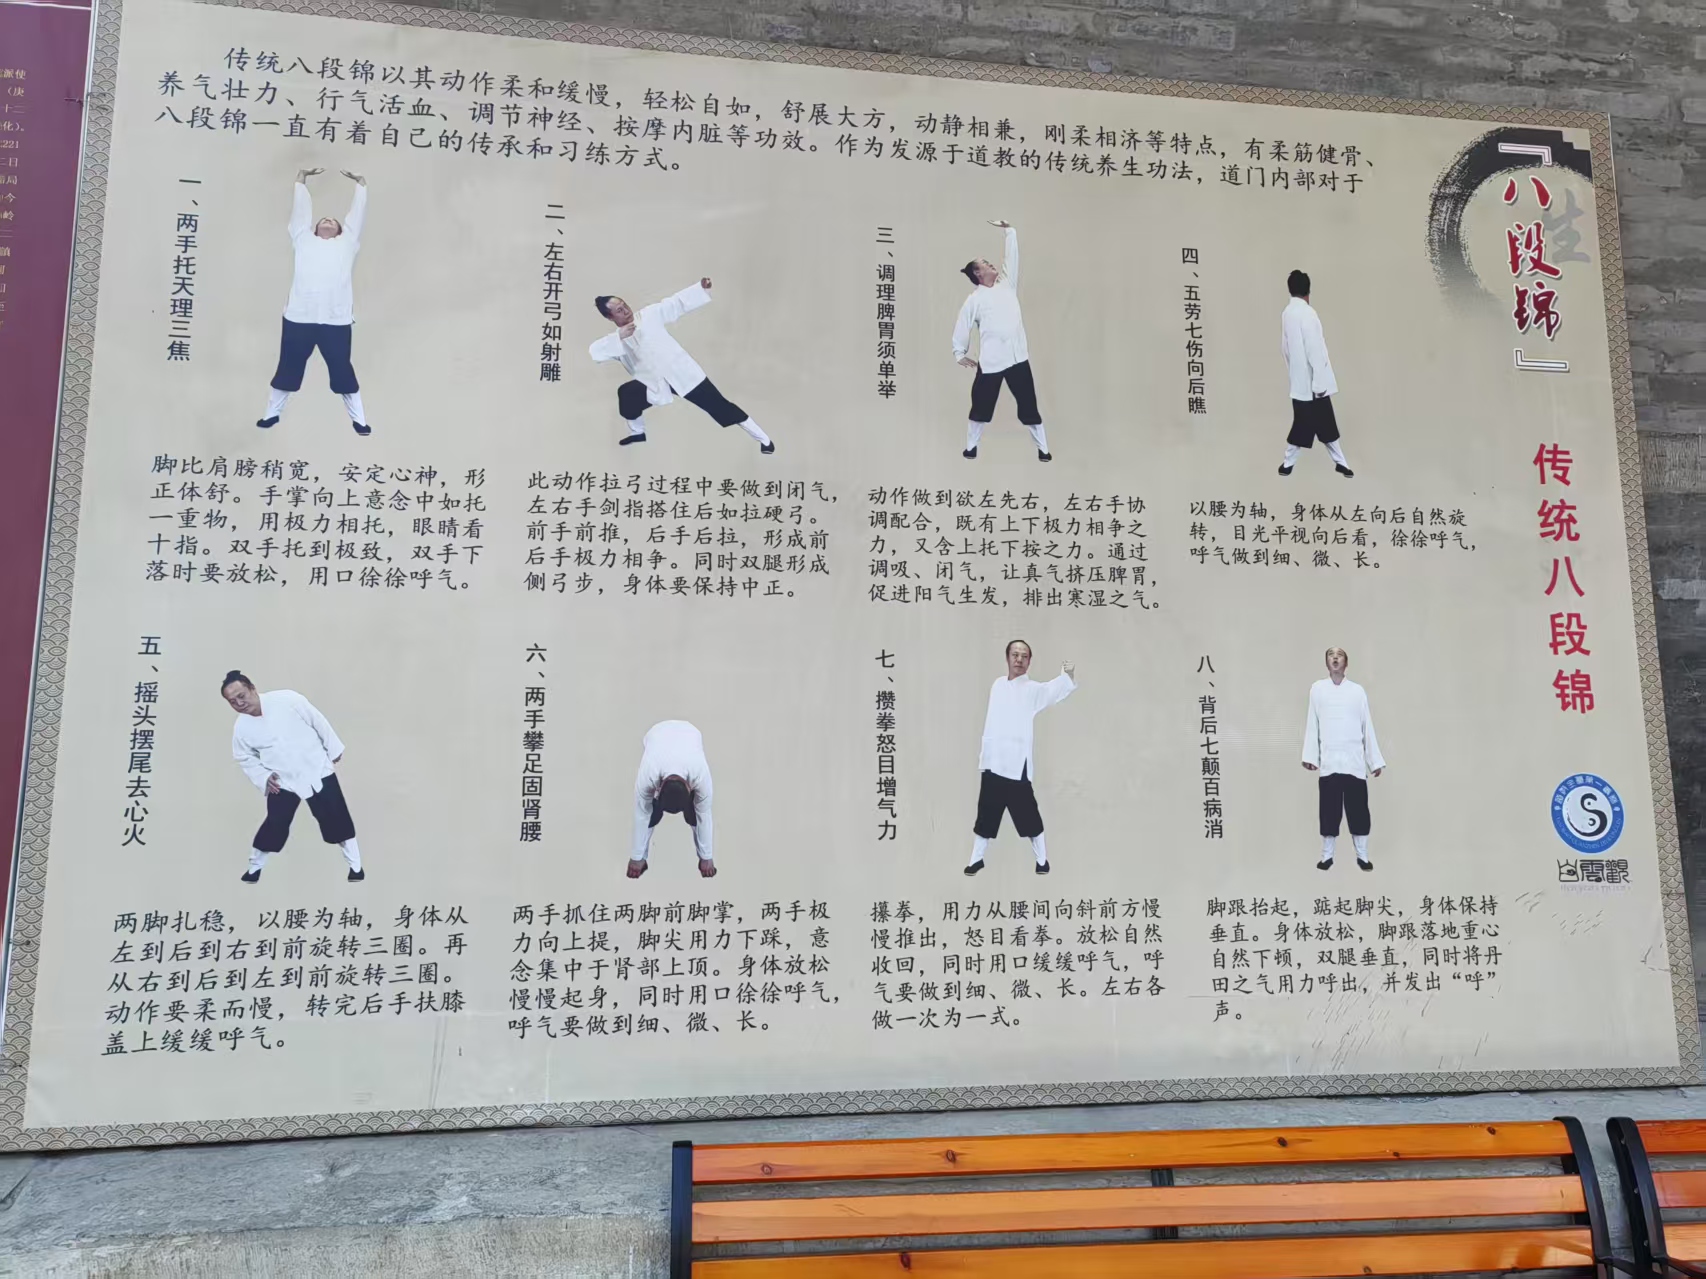 传统八段锦以其动作柔和缓慢，轻松自如，舒展大方，动静相兼，刚柔相济等特点，有柔筋健骨、
养气壮力、行气活血、调节神经、按摩内脏等功效。作为发源于道教的传统养生功法，道门内部对于
八段锦一直有着自己的传承和习练方式。
『八段锦』
生
传统八段锦
一、两手托天理三焦
脚比肩膀稍宽，安定心神，形
正体舒。手掌向上意念中如托
一重物，用极力相托，眼睛看
十指。双手托到极致，双手下
落时要放松，用口徐徐呼气。
二、左右开弓如射雕
此动作拉弓过程中要做到闭气，
左右手剑指搭住后如拉硬弓。
前手前推，后手后拉，形成前
后手极力相争。同时双腿形成
侧弓步，身体要保持中正。
三、调理脾胃须单举
动作做到欲左先右，左右手协
调配合，既有上下极力相争之
力，又含上托下按之力。通过
调吸、闭气，让真气挤压脾胃，
促进阳气生发，排出寒湿之气。
四、五劳七伤向后瞧
以腰为轴，身体从左向后自然旋
转，目光平视向后看，徐徐呼气，
呼气做到细、微、长。
五、摇头摆尾去心火
两脚扎稳，以腰为轴，身体从
左到后到右到前旋转三圈。再
从右到后到左到前旋转三圈。
动作要柔而慢，转完后手扶膝
盖上缓缓呼气。
六、两手攀足固肾腰
两手抓住两脚前脚掌，两手极
力向上提，脚尖用力下踩，意
念集中于肾部上顶。身体放松
慢慢起身，同时用口徐徐呼气，
呼气要做到细、微、长。
七、攒拳怒目增气力
攥拳，用力从腰间向斜前方慢
慢推出，怒目看拳。放松自然
收回，同时用口缓缓呼气，呼
气要做到细、微、长。左右各
做一次为一式。
八、背后七颠百病消
脚跟抬起，踮起脚尖，身体保持
垂直。身体放松，脚跟落地重心
自然下顿，双腿垂直，同时将丹
田之气用力呼出，并发出“呼”
声。
白雲觀